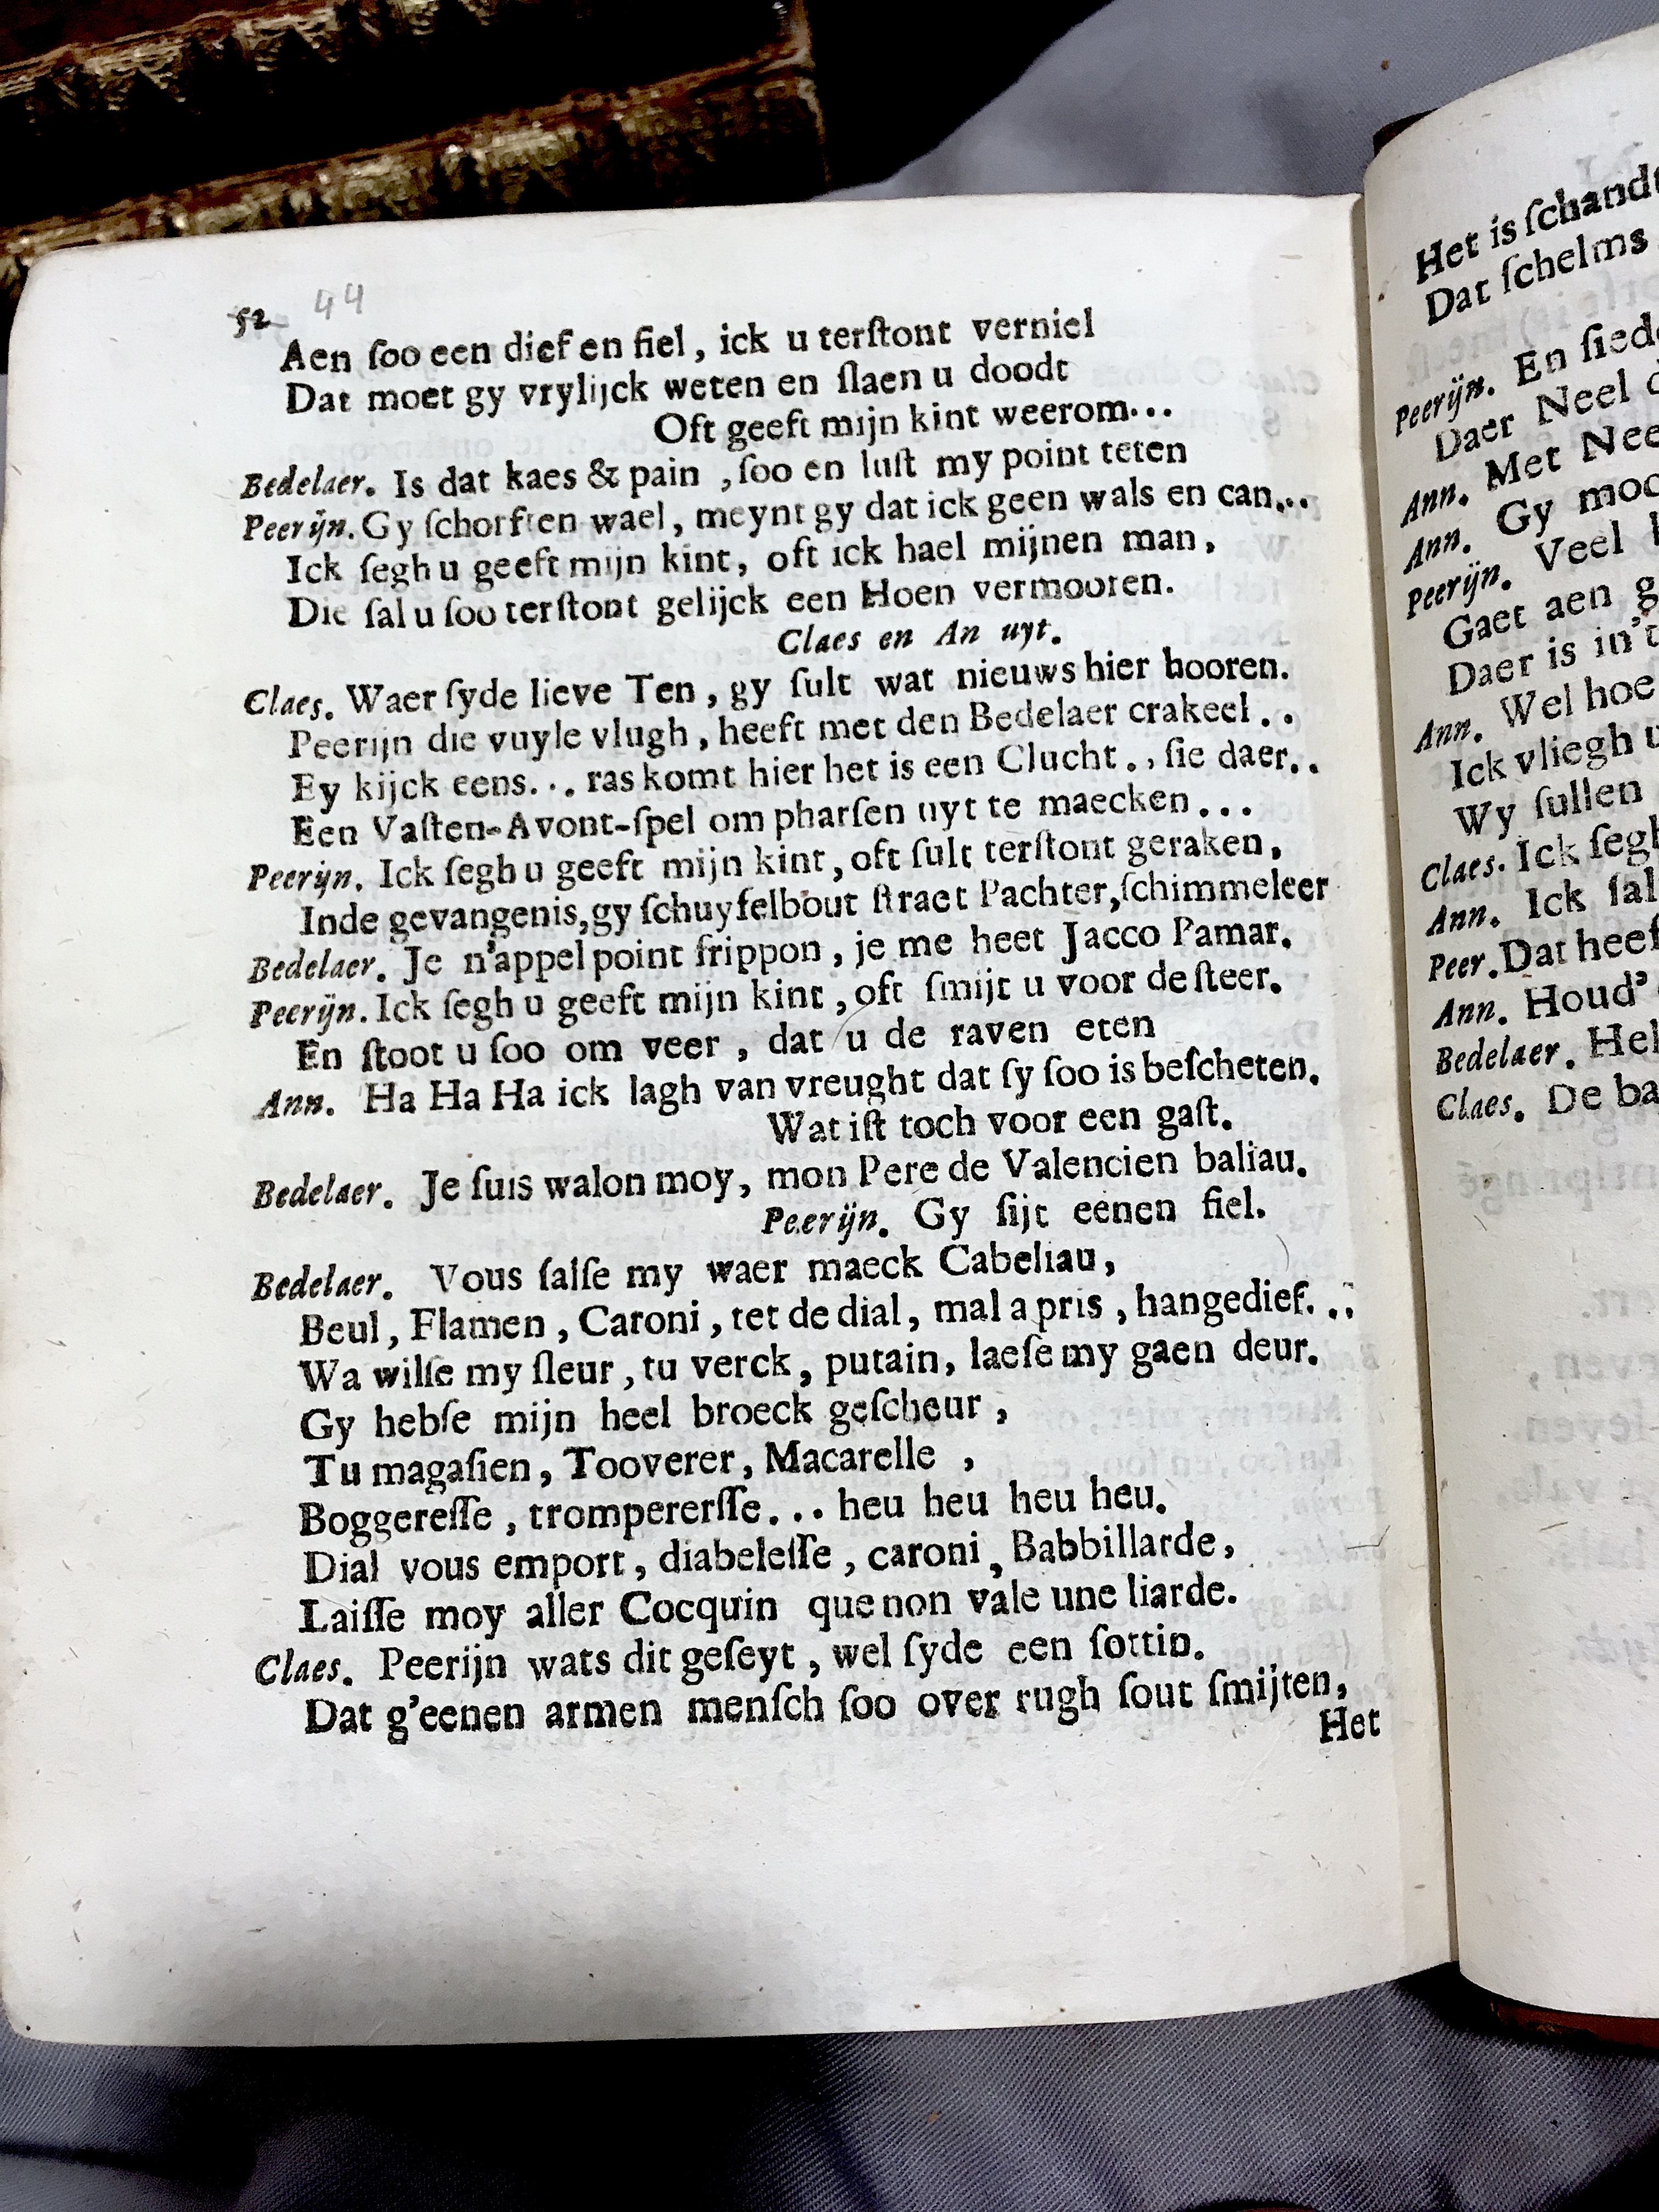 52 44
Aen ſoo een dief en fiel, ick u terſtont verniel
Dat moet gy vrylijck weten en ſlaen u doodt
Oft geeft mijn kint weerom...
Bedelaer. Is dat kaes & pain, ſoo en luſt my point teten
Peerijn. Gy ſchorften wael, meynt gy dat ick geen wals en can...
Ick ſegh u geeft mijn kint, oft ick hael mijnen man,
Die ſal u ſoo terſtont gelijck een Hoen vermooren.
Claes en An uyt.
Claes. Waer ſyde lieve Ten, gy ſult wat nieuws hier hooren.
Peerijn die vuyle vlugh, heeft met den Bedelaer crakeel..
Ey kijck eens... ras komt hier het is een Clucht.., ſie daer..
Een Vaſten-Avont-ſpel om pharſen uyt te maecken...
Peerijn. Ick ſegh u geeft mijn kint, oft ſult terſtont geraken,
Inde gevangenis, gy ſchuyfelbout ſtraet Pachter, ſchimmeleer
Bedelaer. Je n'appel point frippon, je me heet Jacco Pamar.
Peerijn. Ick ſegh u geeft mijn kint, oft ſmijt u voor de ſteer.
En ſtoot u ſoo om veer, dat u de raven eten
Ann. Ha Ha Ha ick lagh van vreught dat ſy ſoo is beſcheten.
Wat iſt toch voor een gaſt.
Bedelaer. Je ſuis walon moy, mon Pere de Valencien baliau.
Peerijn. Gy ſijt eenen fiel.
Bedelaer. Vous ſalſe my waer maeck Cabeliau,
Beul, Flamen, Caroni, tet de dial, mal a pris, hangedief...
Wa wilſe my ſleur, tu verck, putain, laeſe my gaen deur.
Gy hebſe mijn heel broeck geſcheur,
Tu magaſien, Tooverer, Macarelle,
Boggereſſe, trompererſſe... heu heu heu heu.
Dial vous emport, diabeleſſe, caroni, Babbillarde,
Laiſſe moy aller Cocquin que non vale une liarde.
Claes. Peerijn wats dit geſeyt, wel ſyde een ſottin.
Dat g'eenen armen menſch ſoo over rugh ſout ſmijten,
Het
Het is ſchandt
Dat ſchelms
Peerijn. En ſied
Daer Neel
Ann. Met Nee
Ann. Gy moc
Peerijn. Veel
Gaet aen g
Daer is in't
Ann. Wel hoe
Ick vliegh u
Wy ſullen
Claes. Ick ſegh
Ann. Ick ſal
Peer. Dat heef
Ann. Houd'
Bedelaer. Hel
Claes. De ba